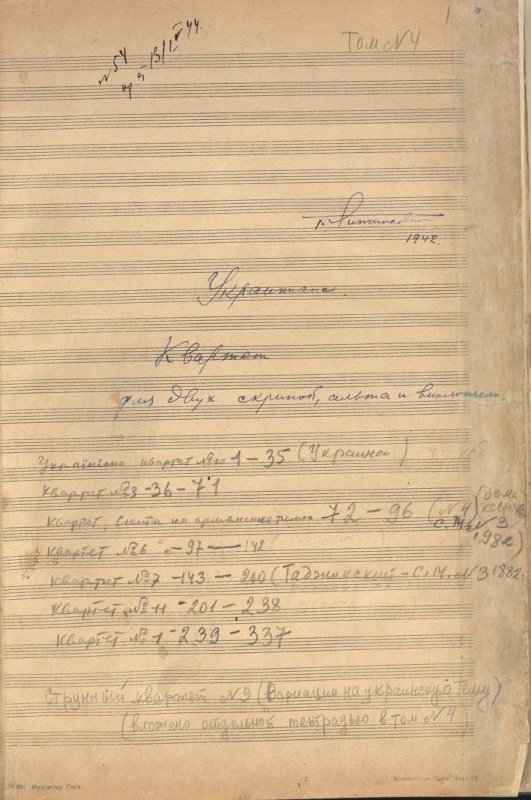 Том №4
№54
пр 13/I 44.
Г. Литинский
1942.
Украиниана.
Квартет
для двух скрипок, альта и виолончели.
Україніана квартет №10 1 – 35 (Украина )
Квартет №3 – 36 – 71
Квартет, Сюита на армянские темы – 72 – 96 (№4)
Квартет №6 – 97 — 142
Квартет №7 – 143 – 200 (Таджикский – С. 14. №3 1982
Квартет №11 – 201 – 238
Квартет №1 – 239 – 337
Струнный квартет №9 (Вариации на украинскую тему)
(вложено отдельной тетрадью в том №4)